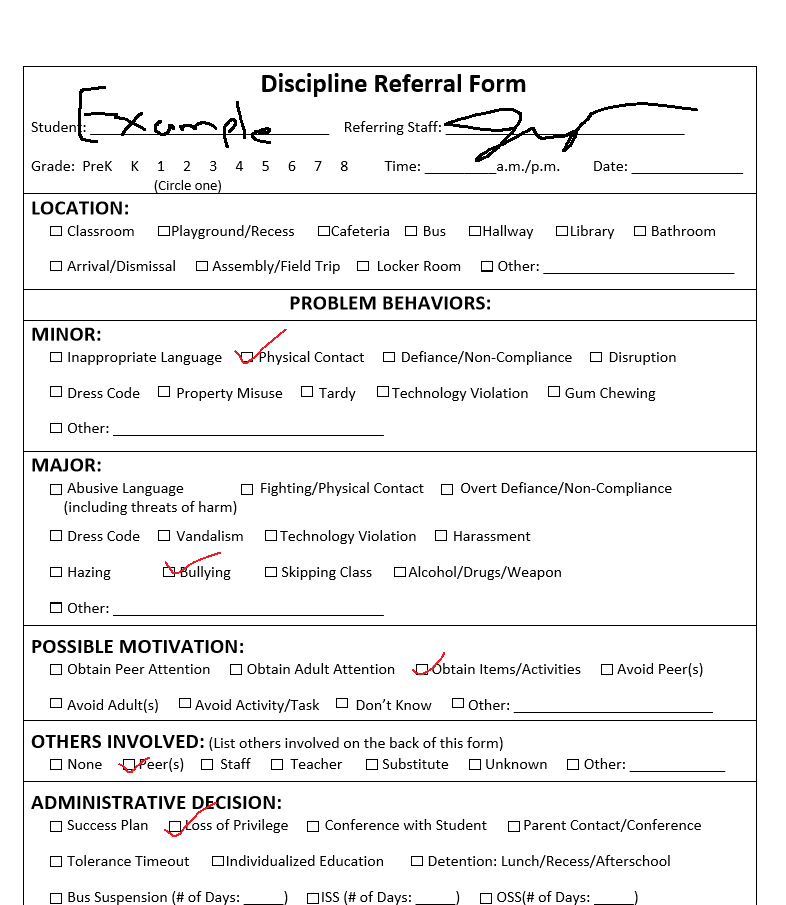 Discipline Referral Form
Student: Example Referring Staff: ____
Grade: PreK K 1 2 3 4 5 6 7 8 Time: ________a.m./p.m. Date: ____________
(Circle one)
LOCATION:
☐ Classroom ☐Playground/Recess ☐Cafeteria ☐ Bus ☐Hallway ☐Library ☐ Bathroom
☐ Arrival/Dismissal ☐ Assembly/Field Trip ☐ Locker Room ☐ Other: ____________________
PROBLEM BEHAVIORS:
MINOR:
☐ Inappropriate Language ☑ Physical Contact ☐ Defiance/Non-Compliance ☐ Disruption
☐ Dress Code ☐ Property Misuse ☐ Tardy ☐Technology Violation ☐ Gum Chewing
☐ Other: ____________________
MAJOR:
☐ Abusive Language ☐ Fighting/Physical Contact ☐ Overt Defiance/Non-Compliance
(including threats of harm)
☐ Dress Code ☐ Vandalism ☐Technology Violation ☐ Harassment
☐ Hazing ☑ Bullying ☐ Skipping Class ☐Alcohol/Drugs/Weapon
☐ Other: ____________________
POSSIBLE MOTIVATION:
☐ Obtain Peer Attention ☐ Obtain Adult Attention ☑ Obtain Items/Activities ☐ Avoid Peer(s)
☐ Avoid Adult(s) ☐ Avoid Activity/Task ☐ Don't Know ☐ Other: ____________________
OTHERS INVOLVED: (List others involved on the back of this form)
☐ None ☑ Peer(s) ☐ Staff ☐ Teacher ☐ Substitute ☐ Unknown ☐ Other: ____________
ADMINISTRATIVE DECISION:
☐ Success Plan ☑ Loss of Privilege ☐ Conference with Student ☐ Parent Contact/Conference
☐ Tolerance Timeout ☐Individualized Education ☐ Detention: Lunch/Recess/Afterschool
☐ Bus Suspension (# of Days: _____) ☐ISS (# of Days: _____) ☐ OSS(# of Days: _____)